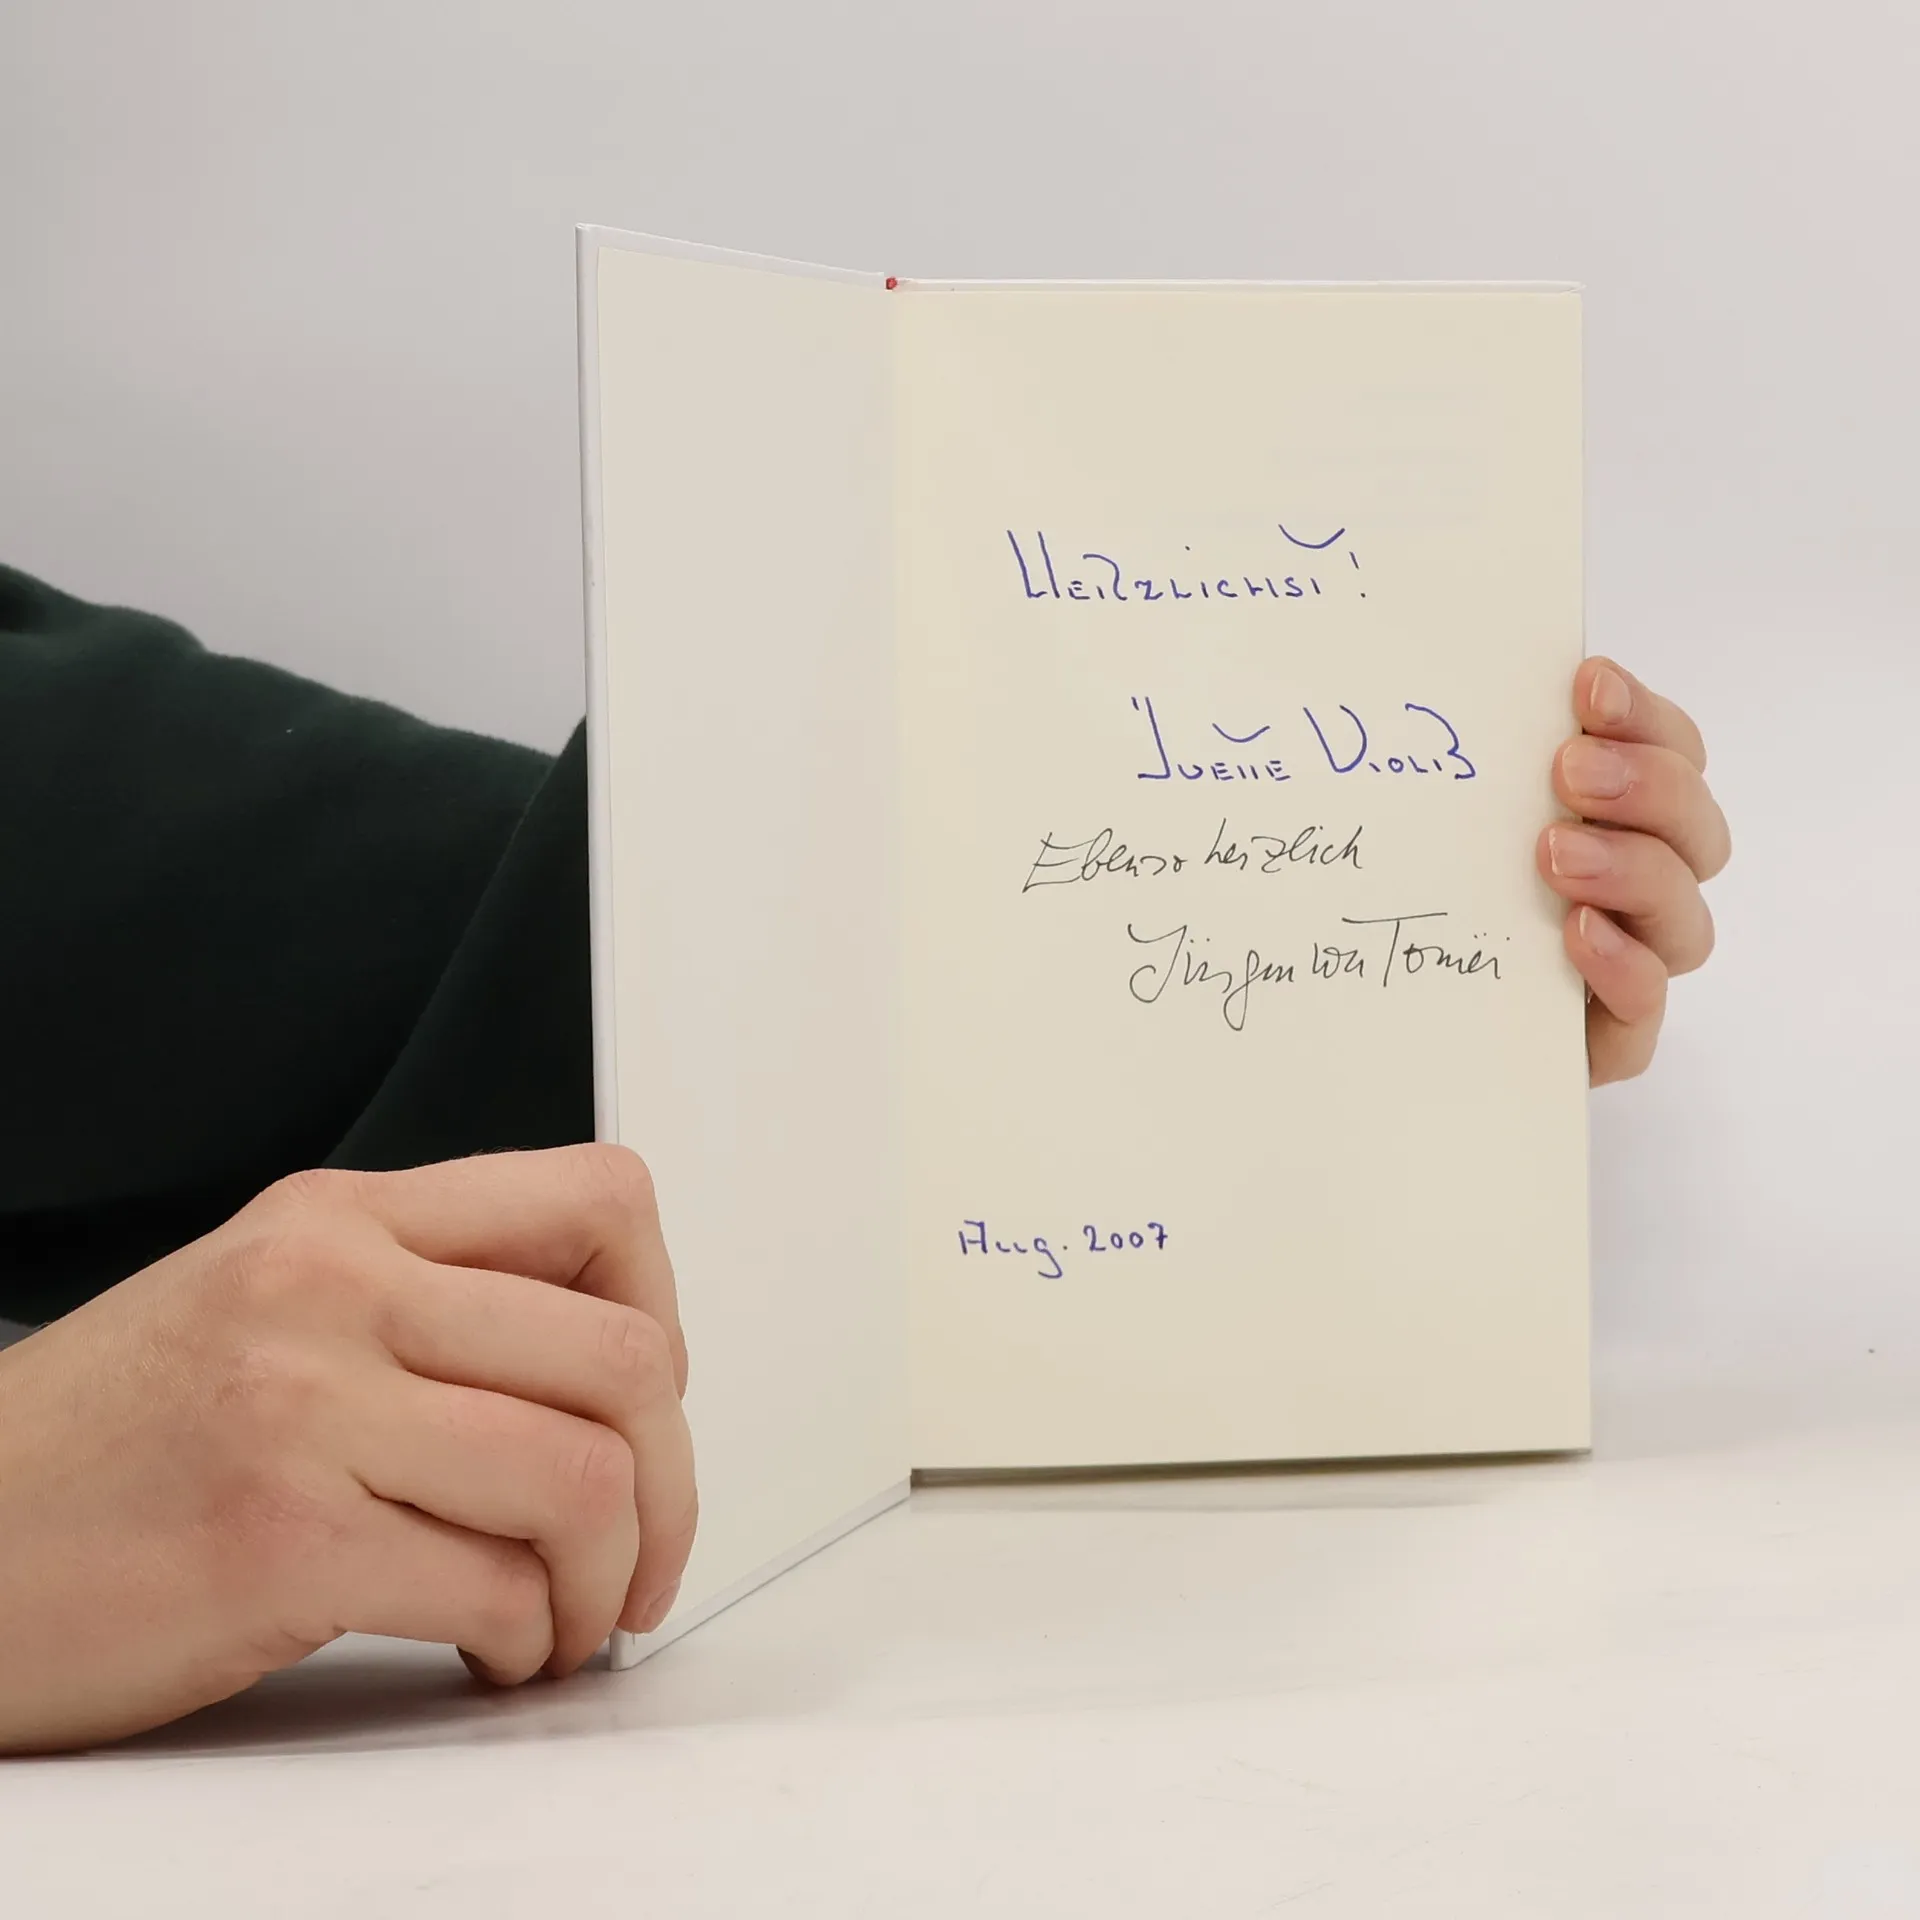 Herzlichst!
Juette Violiß
Ebenso herzlich
Jürgen von Tomëi
Aug. 2007